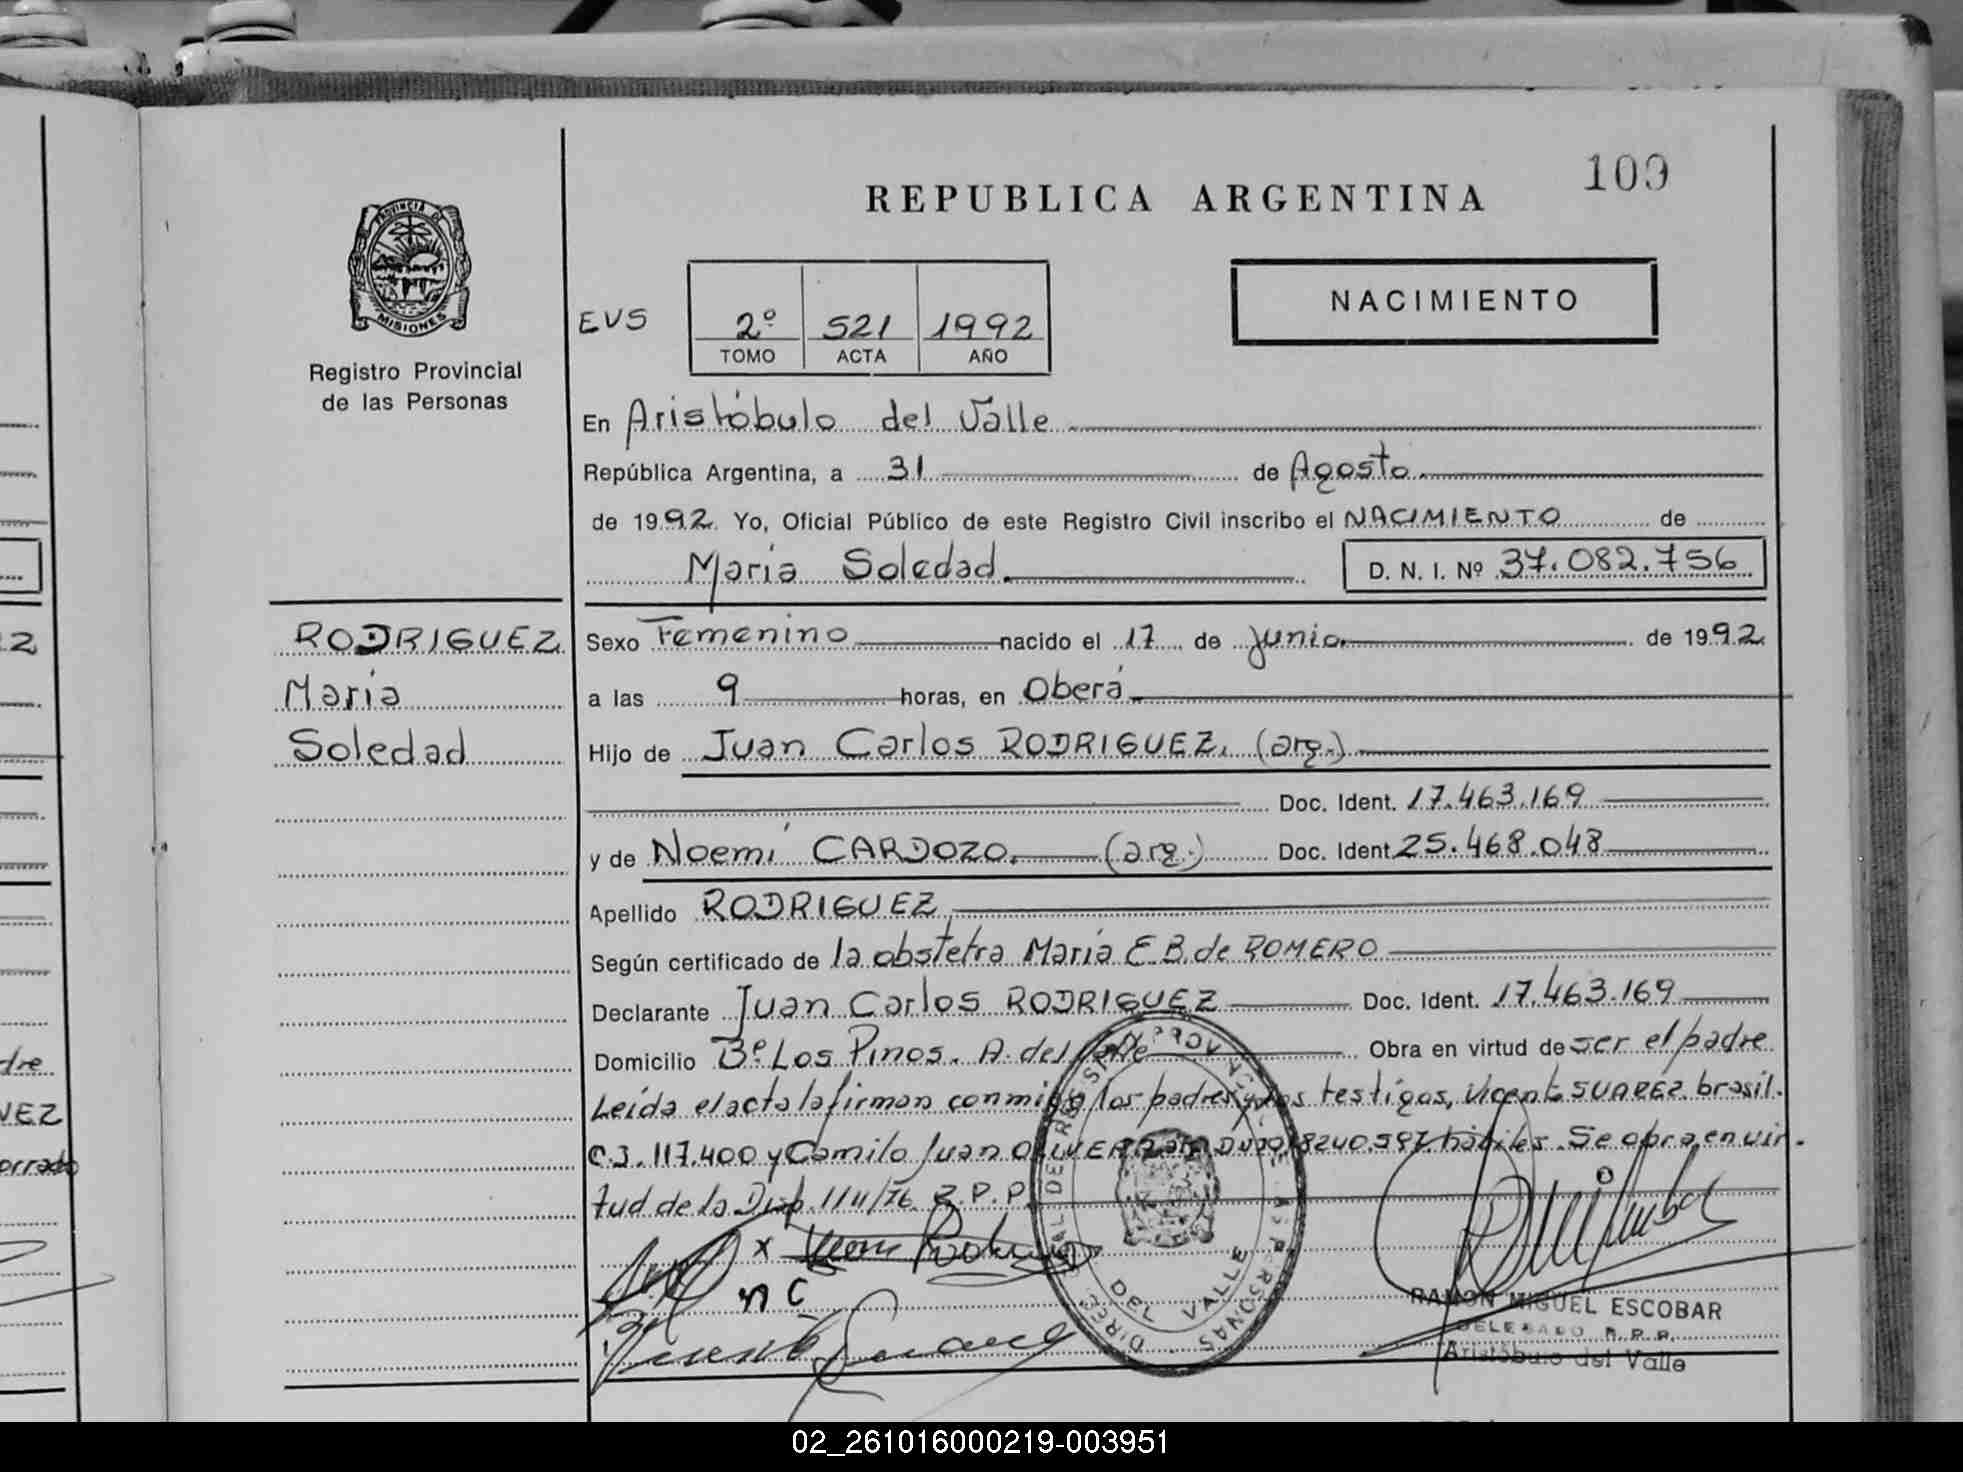 109
REPUBLICA ARGENTINA
PROVINCIA DE MISIONES
Registro Provincial
de las Personas
NACIMIENTO
EVS 2º 521 1992
TOMO ACTA AÑO
En Aristóbulo del Valle
República Argentina, a 31 de Agosto
de 1992. Yo, Oficial Público de este Registro Civil inscribo el NACIMIENTO de
María Soledad. D. N. I. Nº 37.082.756
RODRIGUEZ
María
Soledad
Sexo Femenino nacido el 17 de junio de 1992
a las 9 horas, en Oberá
Hijo de Juan Carlos RODRIGUEZ. (arg.)
Doc. Ident. 17.463.169
y de Noemí CARDOZO. (arg.) Doc. Ident. 25.468.048
Apellido RODRIGUEZ
Según certificado de la obstetra María E.B. de ROMERO
Declarante Juan Carlos RODRIGUEZ Doc. Ident. 17.463.169
Domicilio Bº Los Pinos. A. del Valle Obra en virtud de ser el padre
Leída el acta la firman conmigo los padres y los testigos, Vicente SUAREZ. brasil.
C.I. 117.400 y Camilo Juan hábiles. Se obra en vir-
tud de la Disp. 111/76. R.P.P.
x Rodriguez
n c
DEL VALLE
RAMON MIGUEL ESCOBAR
DELEGADO R.P.P.
Aristóbulo del Valle
02_261016000219-003951